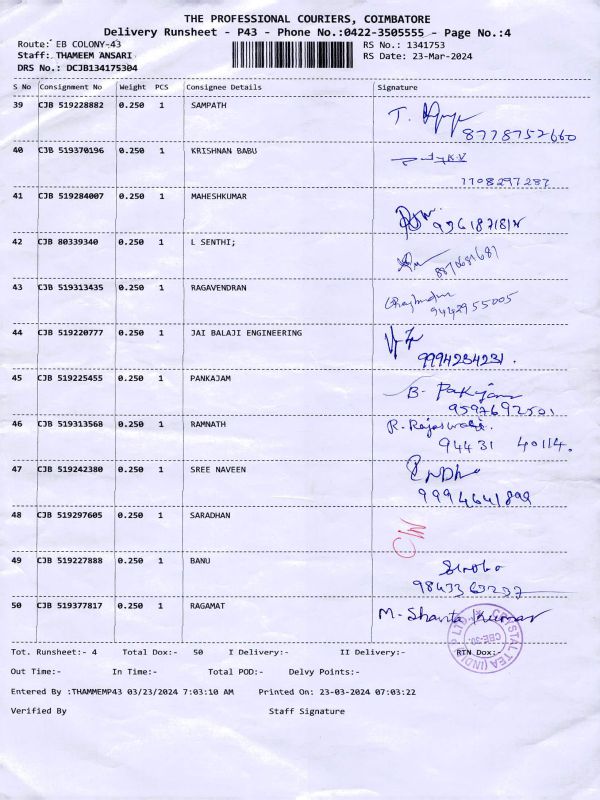 THE PROFESSIONAL COURIERS, COIMBATORE
Delivery Runsheet - P43 - Phone No.:0422-3505555 - Page No.:4
Route: EB COLONY-43 RS No.: 1341753
Staff: THAMEEM ANSARI RS Date: 23-Mar-2024
DRS No.: DCJB134175304
S No Consignment No Weight PCS Consignee Details Signature
39 CJB 519228882 0.250 1 SAMPATH T.
8778752660
40 CJB 519370196 0.250 1 KRISHNAN BABU
1108297287
41 CJB 519284007 0.250 1 MAHESHKUMAR
42 CJB 80339340 0.250 1 L SENTHI;
43 CJB 519313435 0.250 1 RAGAVENDRAN
9442955005
44 CJB 519220777 0.250 1 JAI BALAJI ENGINEERING
9994234231.
45 CJB 519225455 0.250 1 PANKAJAM B.
9597692501
46 CJB 519313568 0.250 1 RAMNATH R.
94431 40114.
47 CJB 519242380 0.250 1 SREE NAVEEN
9994641899
48 CJB 519297605 0.250 1 SARADHAN
49 CJB 519227888 0.250 1 BANU
50 CJB 519377817 0.250 1 RAGAMAT M. Shanta Kumar
CRYSTAL TEA (INDIA) P LTD.
CBE-30.
Tot. Runsheet:- 4 Total Dox:- 50 I Delivery:- II Delivery:- RTN Dox:-
Out Time:- In Time:- Total POD:- Delvy Points:-
Entered By :THAMMEMP43 03/23/2024 7:03:10 AM Printed On: 23-03-2024 07:03:22
Verified By Staff Signature